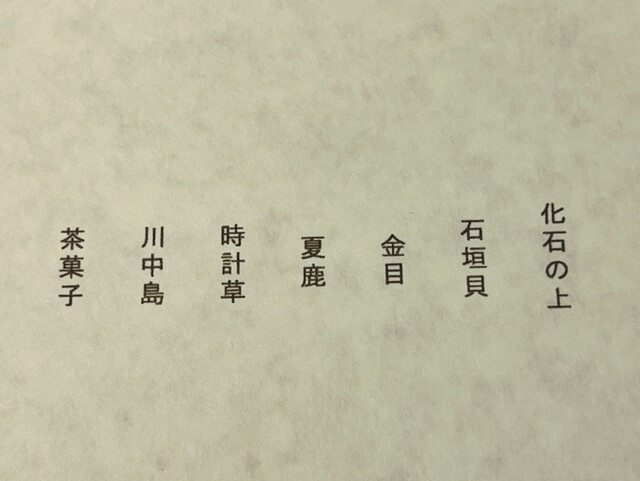 化石の上
石垣貝
金目
夏鹿
時計草
川中島
茶菓子